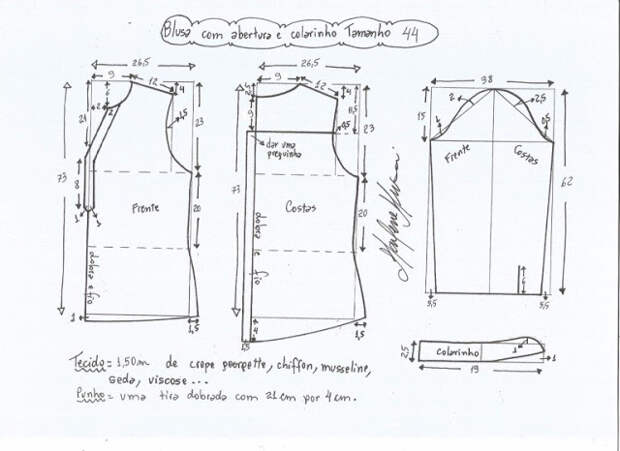 Blusa com abertura e colarinho Tamanho 44
26,5
9
12
4
6
2
2
1,5
21
23
73
8
1
1
Frente
20
dobra e fio
1
1,5
26,5
9
12
4
2,5
9
18,5
0,5
dar uma preguinha
23
73
Costas
20
dobra e fio
1,5
4
1,5
38
15
2
2,5
1
0,5
Frente
Costas
62
6
3,5
3,5
2,5
colarinho
1
1
19
Tecido = 1,50m de crepe georgette, chiffon, musseline,
seda, viscose...
Punho = uma tira dobrada com 21cm por 4cm.